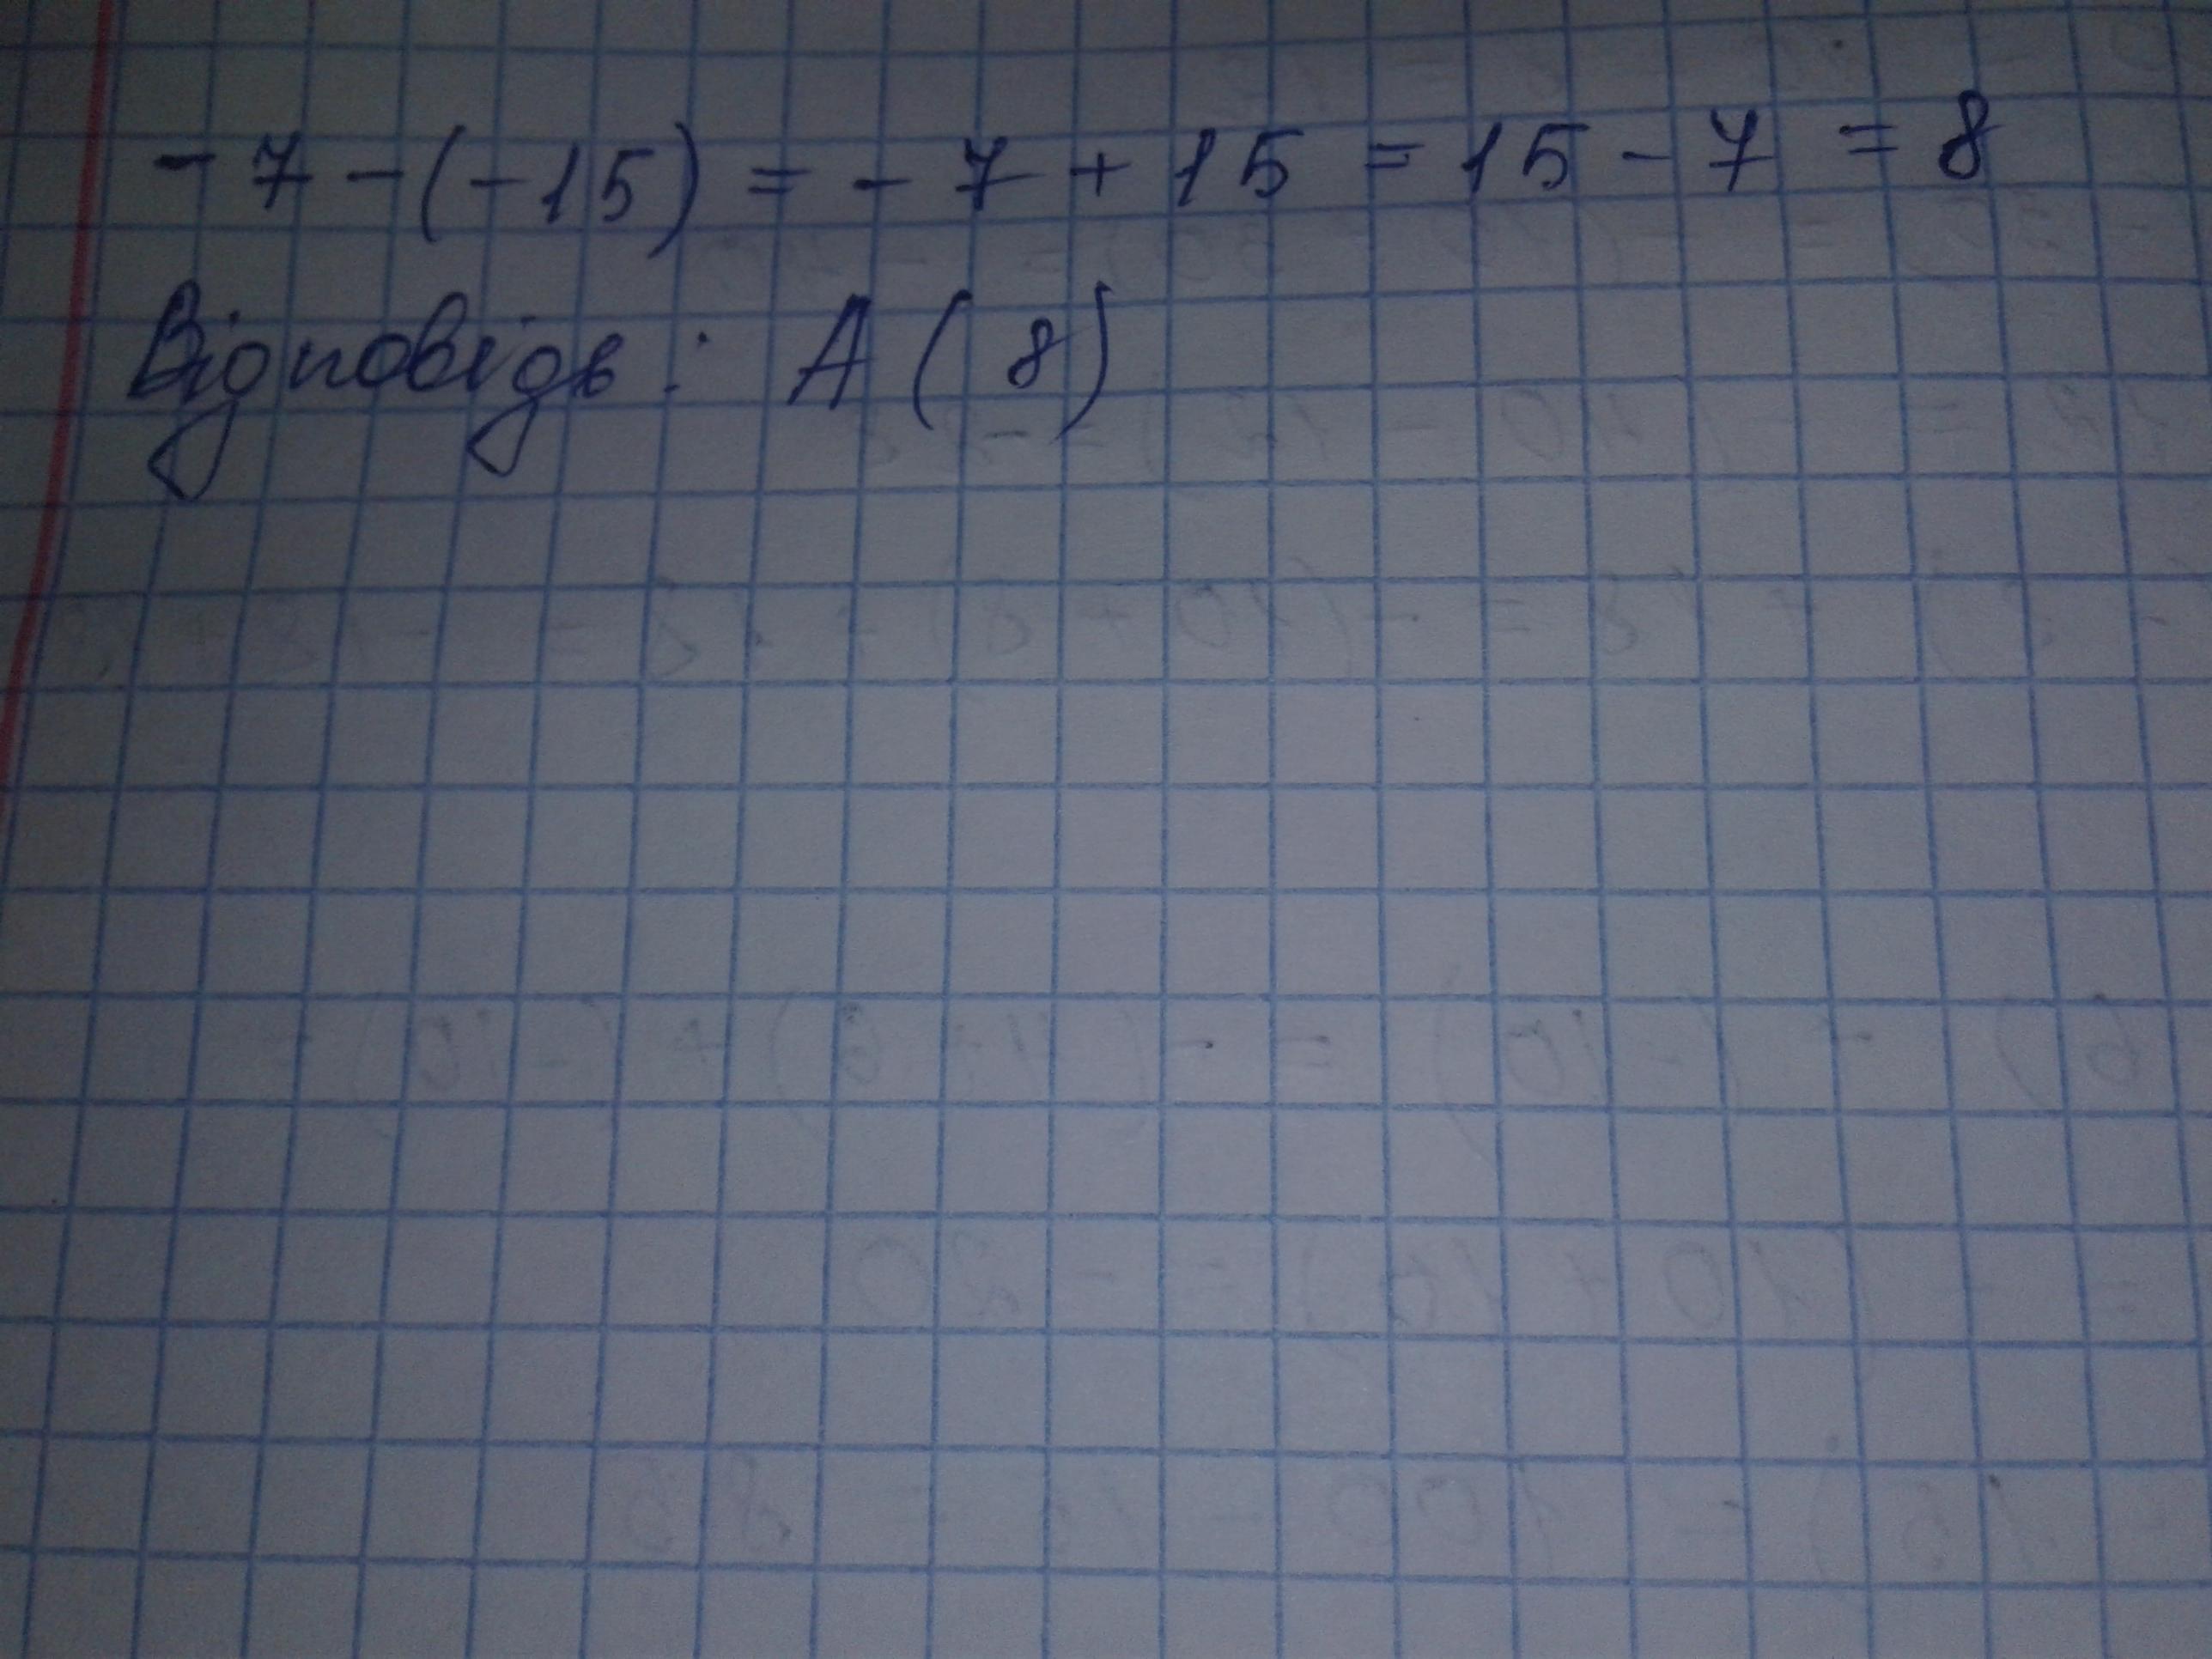 - 7 - (-15) = - 7 + 15 = 15 - 7 = 8
Відповідь: А ( 8 )